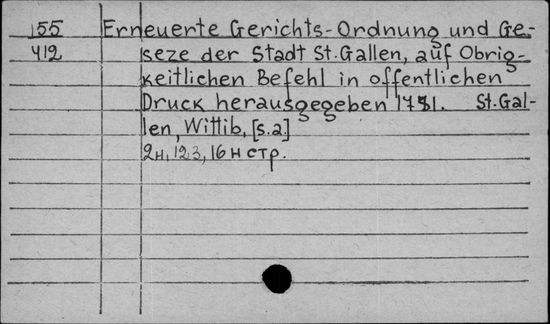 155 Erneuerte Gerichts-Ordnung und Ge-
412 seze der Stadt St. Gallen, auf Obrig-
keitlichen Befehl in offentlichen
Druck herausgegeben 1781. St. Gal-
len, Wittib, [s.a]
2н, 123, 16н стр.